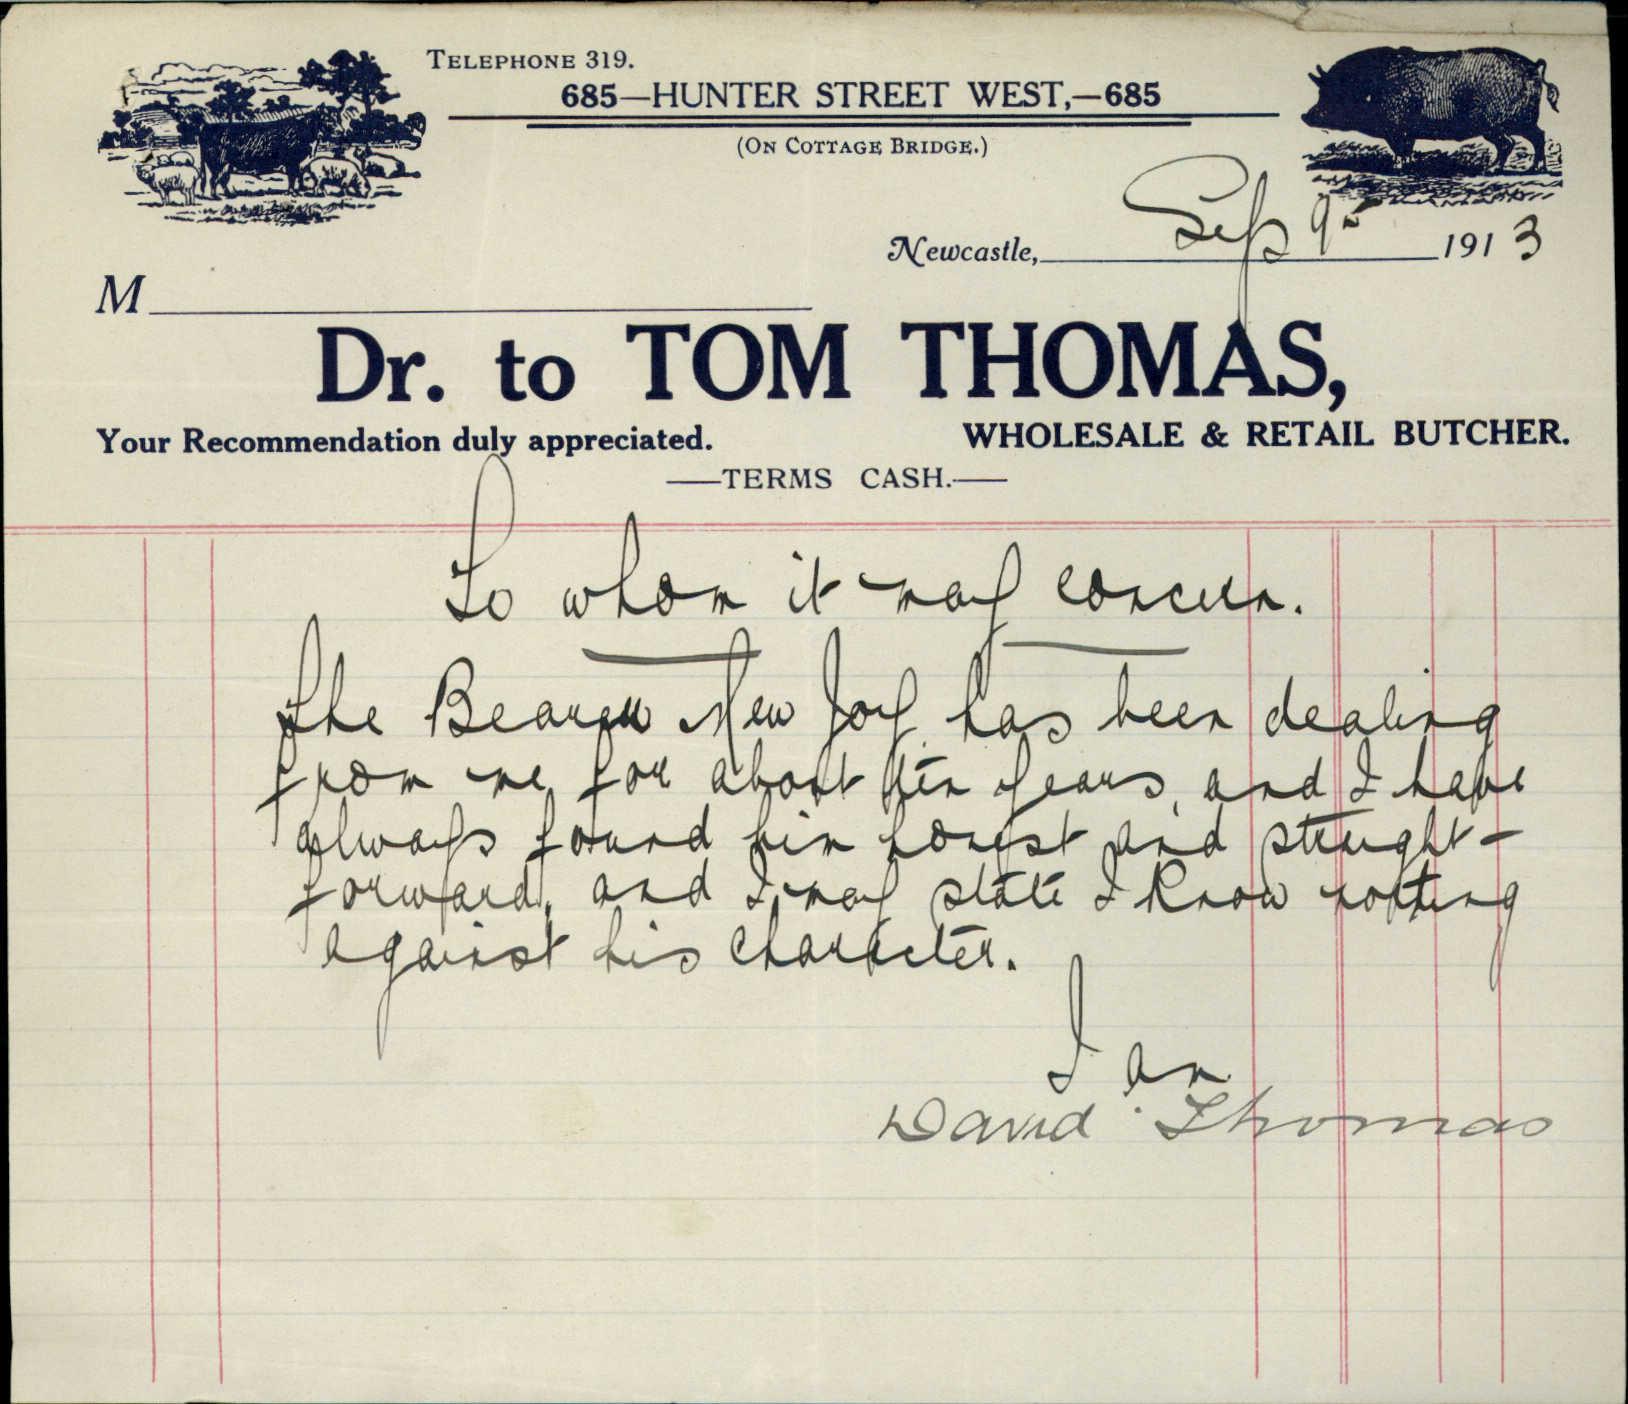 TELEPHONE 319.
685—HUNTER STREET WEST,—685
(ON COTTAGE BRIDGE.)
Newcastle, Sep 9th 1913
M
Dr. to TOM THOMAS,
Your Recommendation duly appreciated.
WHOLESALE & RETAIL BUTCHER.
—TERMS CASH.—
To whom it may concern.
The Bearer New Joy has been dealing
from me for about ten years, and I have
always found him honest and straight-
forward, and I may state I know nothing
against his character.
I am
David Thomas